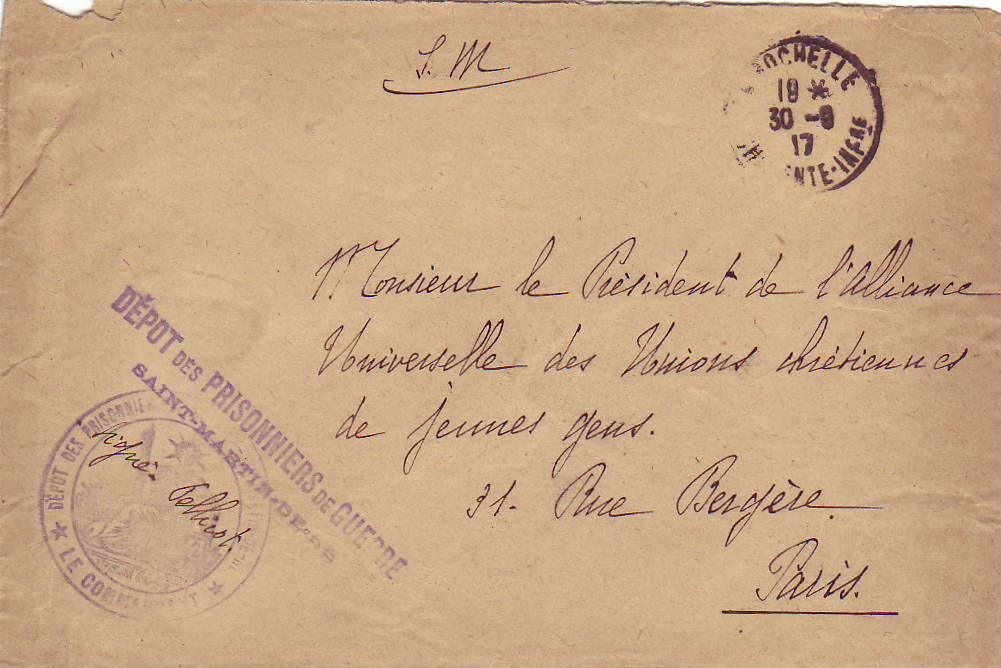 S. M
ROCHELLE
19 *
30 -9
17
ENTE-INFRE
Monsieur le Président de l'Alliance
Universelle des Unions chrétiennes
de jeunes gens.
31. Rue Bergère.
Paris.
DÉPOT DES PRISONNIERS DE GUERRE
SAINT-MARTIN-DE-RÉ
DÉPOT DES PRISONNIER
LE COMMANDANT
Signé: